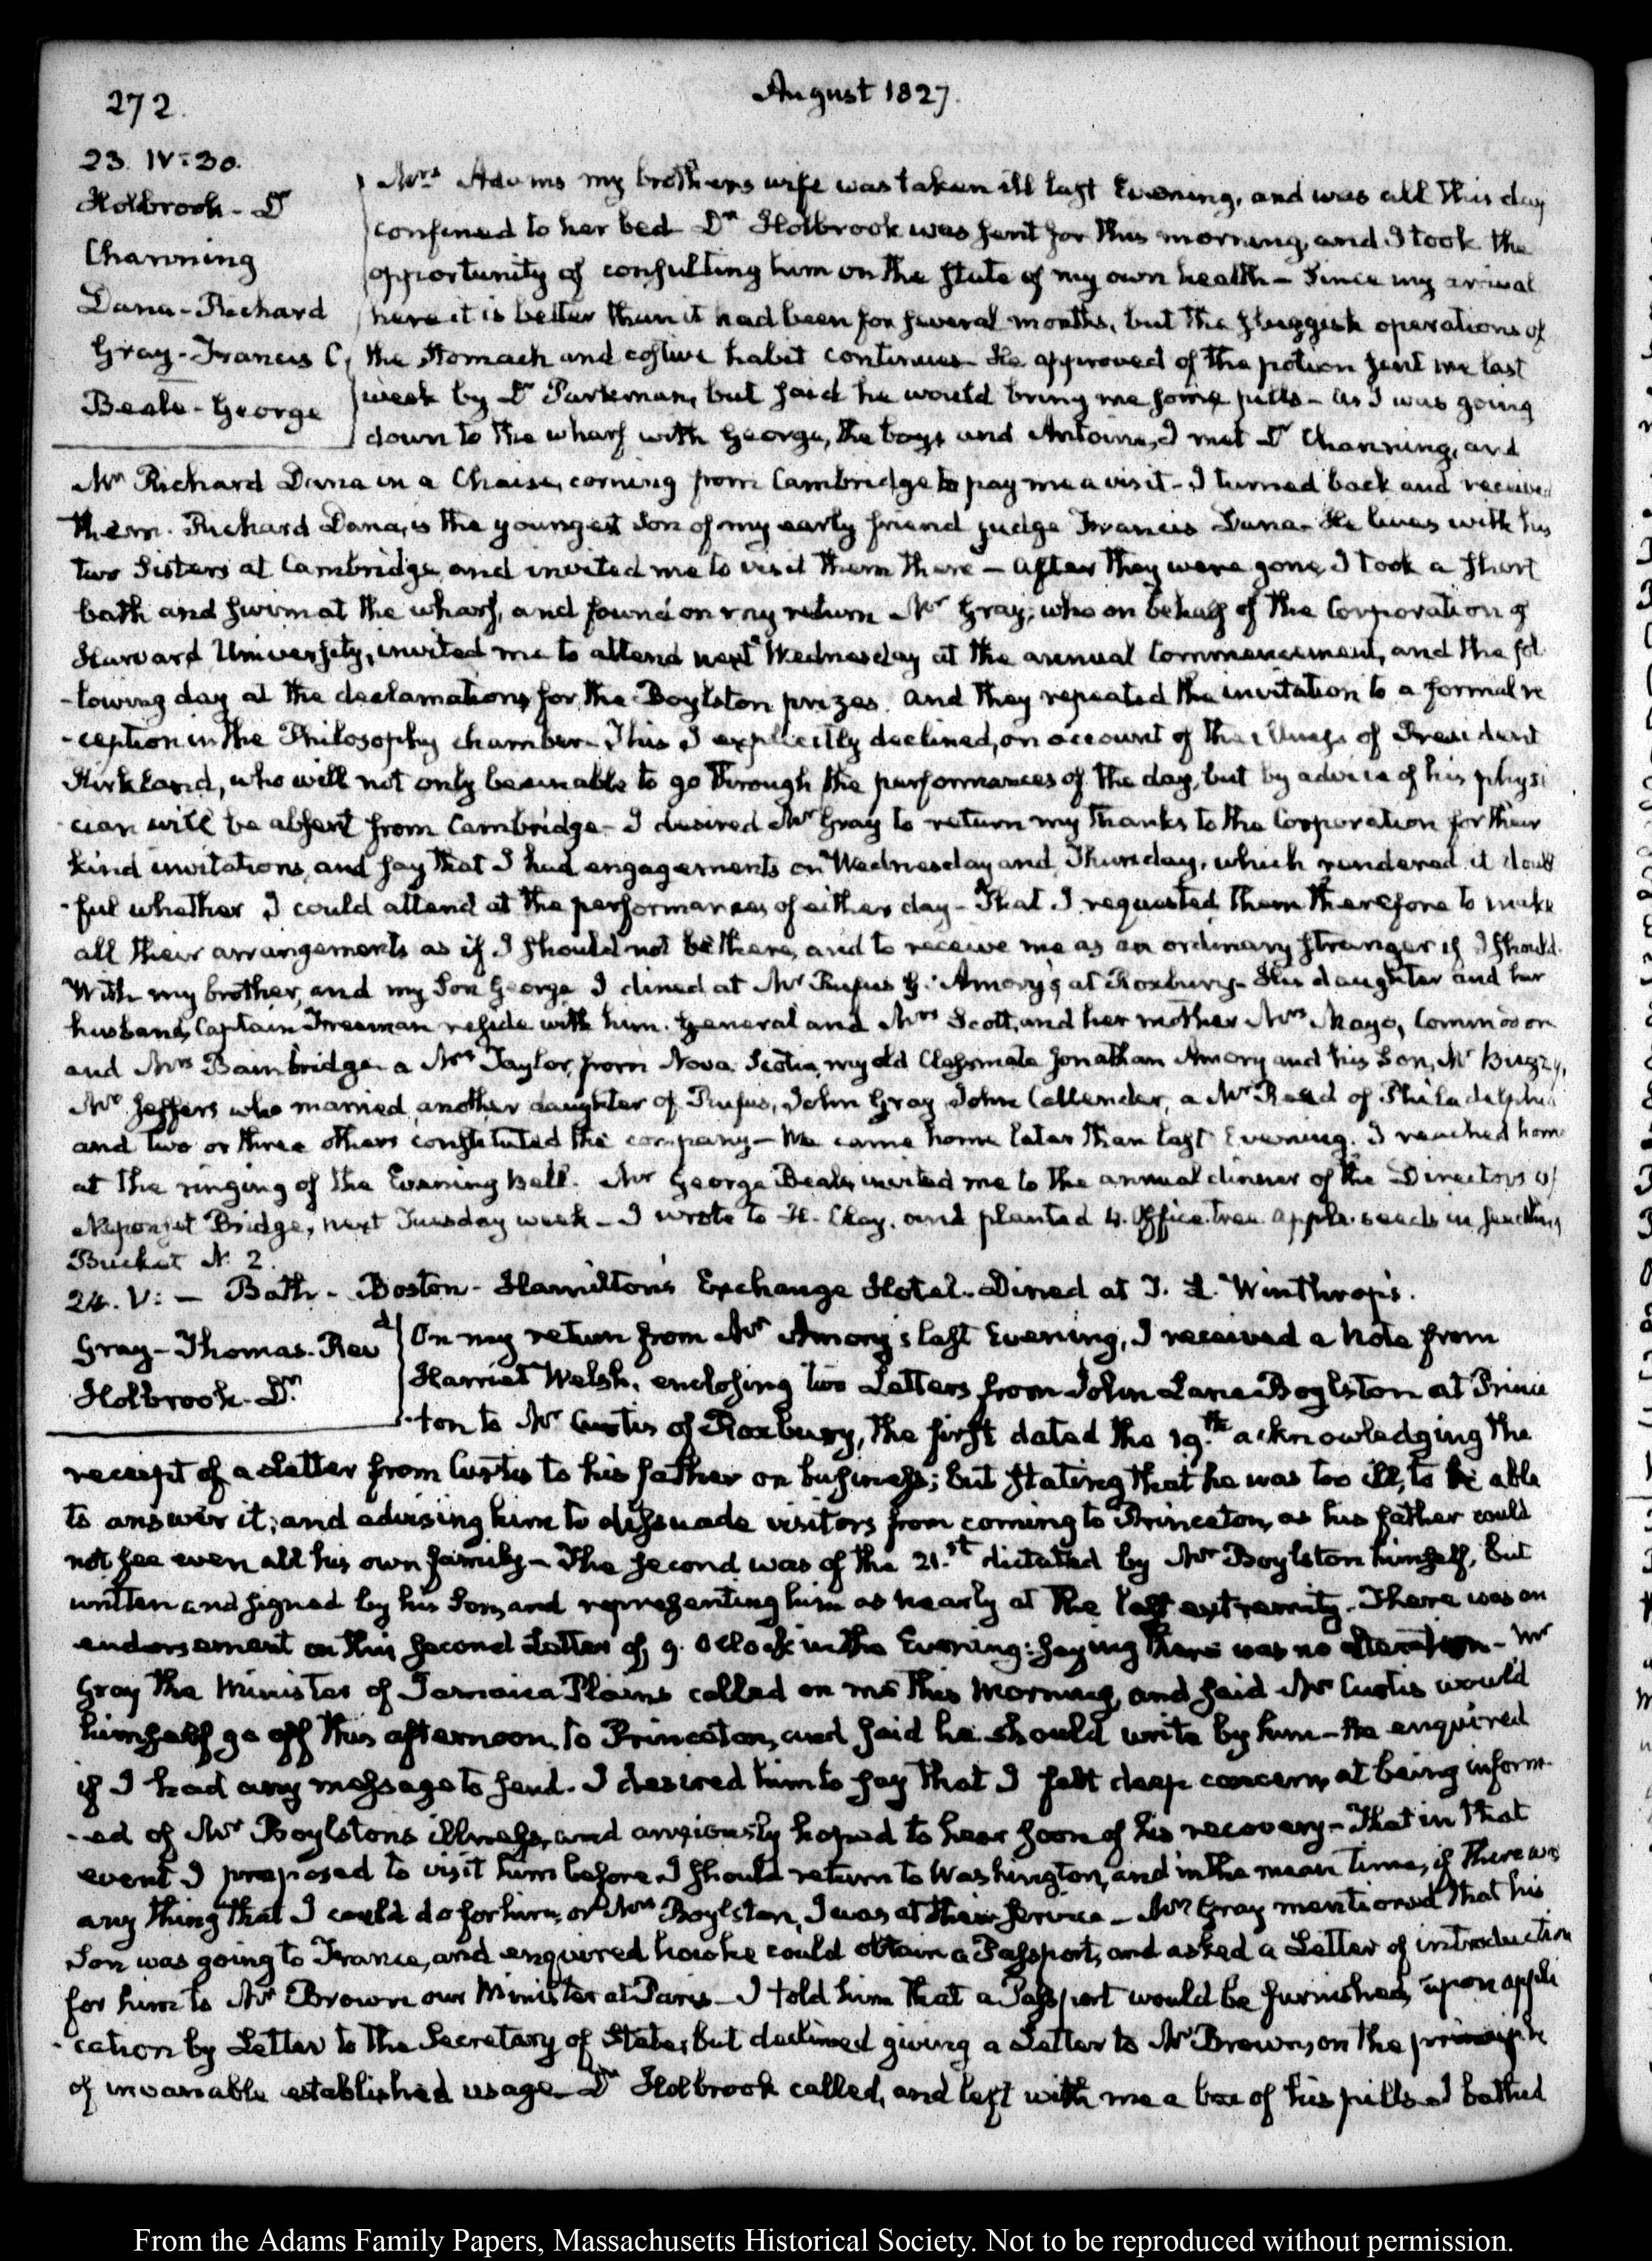 272.
August 1827.
23. IV:30.
Holbrook - Dr
Channing
Dana - Richard
Gray - Francis C.
Beale - George
Mrs Adams my brothers wife was taken ill last Evening, and was all this day
confined to her bed. Dr Holbrook was sent for this morning, and I took the
opportunity of consulting him on the state of my own health - Since my arrival
here it is better than it had been for several months, but the sluggish operations of
the Stomach and costive habit continues - He approved of the potion sent me last
week by Dr Parkman, but said he would bring me some pills - as I was going
down to the wharf with George, the boys and Antoine, I met Dr Channing, and
Mr Richard Dana in a Chaise, coming from Cambridge to pay me a visit - I turned back and received
them. Richard Dana, is the youngest Son of my early friend judge Francis Dana - He lives with his
two Sisters at Cambridge, and invited me to visit them there - After they were gone, I took a short
bath and swim at the wharf, and found on my return Mr Gray, who on behalf of the Corporation of
Harvard University, invited me to attend next Wednesday at the annual Commencement, and the fol
-lowing day at the declamations for the Boylston prizes. and they repeated the invitation to a formal re
-ception in the Philosophy chamber. This I explicitly declined, on account of the illness of President
Kirkland, who will not only be unable to go through the performances of the day, but by advice of his physi
-cian will be absent from Cambridge - I desired Mr Gray to return my thanks to the Corporation for their
kind invitations, and say that I had engagements on Wednesday and Thursday, which rendered it doubt
-ful whether I could attend at the performances of either day - That I requested them therefore to make
all their arrangements as if I should not be there, and to receive me as an ordinary stranger if I should.
With my brother, and my Son George I dined at Mr Rufus G. Amory's at Roxbury - His daughter and her
husband, Captain Freeman reside with him. General and Mrs Scott, and her mother Mrs Mayo, Commodore
and Mrs Bainbridge a Mrs Taylor, from Nova Scotia, my old Classmate Jonathan Amory and his Son, Mr
Mr Jeffers who married another daughter of Rufus, John Gray, John Callender, a Mr Read of Philadelphia
and two or three others constituted the company - We came home later than last Evening. I reached home
at the ringing of the Evening bell. Mr George Beale, invited me to the annual dinner of the Directors of
Neponset Bridge, next Tuesday week - I wrote to H. Clay, and planted 4. Office tree apple seeds in seedling
Bucket N. 2.
24. V: - Bath - Boston - Hamilton's Exchange Hotel. Dined at T. L. Winthrop's.
Gray - Thomas. Revd
Holbrook - Dr.
On my return from Mr Amory's last Evening, I received a Note from
Harriet Welsh, enclosing two Letters from John Lane Boylston at Prince
-ton to Mr Curtis of Roxbury, the first dated the 19.th acknowledging the
receipt of a Letter from Curtis to his father on business; but stating that he was too ill, to be able
to answer it; and advising him to dissuade visitors from coming to Princeton, as his father could
not see even all his own family - The second was of the 21.st dictated by Mr Boylston himself, but
written and signed by his Son, and representing him as nearly at the last extremity. There was an
endorsement on this second Letter of 9. O'Clock in the Evening: saying there was no alteration - Mr
Gray the Minister of Jamaica Plains called on me this Morning, and said Mr Curtis would
himself go off this afternoon, to Princeton, and said he should write by him - He enquired
if I had any message to send. I desired him to say that I felt deep concern, at being inform
-ed of Mr Boylstons illness, and anxiously hoped to hear soon of his recovery - That in that
event I proposed to visit him before I should return to Washington, and in the mean time, if there was
any thing that I could do for him, or Mrs Boylston, I was at their service - Mr Gray mentioned that his
Son was going to France, and enquired how he could obtain a Passport, and asked a Letter of introduction
for him to Mr Brown our Minister at Paris - I told him that a Passport would be furnished, upon appli
-cation by Letter to the Secretary of State, but declined giving a Letter to Mr Brown, on the principle
of invariable established usage - Dr Holbrook called, and left with me a box of his pills - I bathed
From the Adams Family Papers, Massachusetts Historical Society. Not to be reproduced without permission.